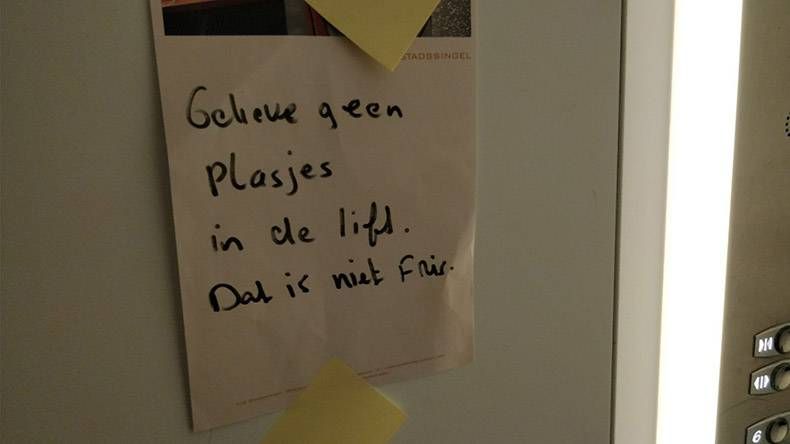 STADSSINGEL
Gelieve geen
Plasjes
in de lift.
Dat is niet Fris.
6